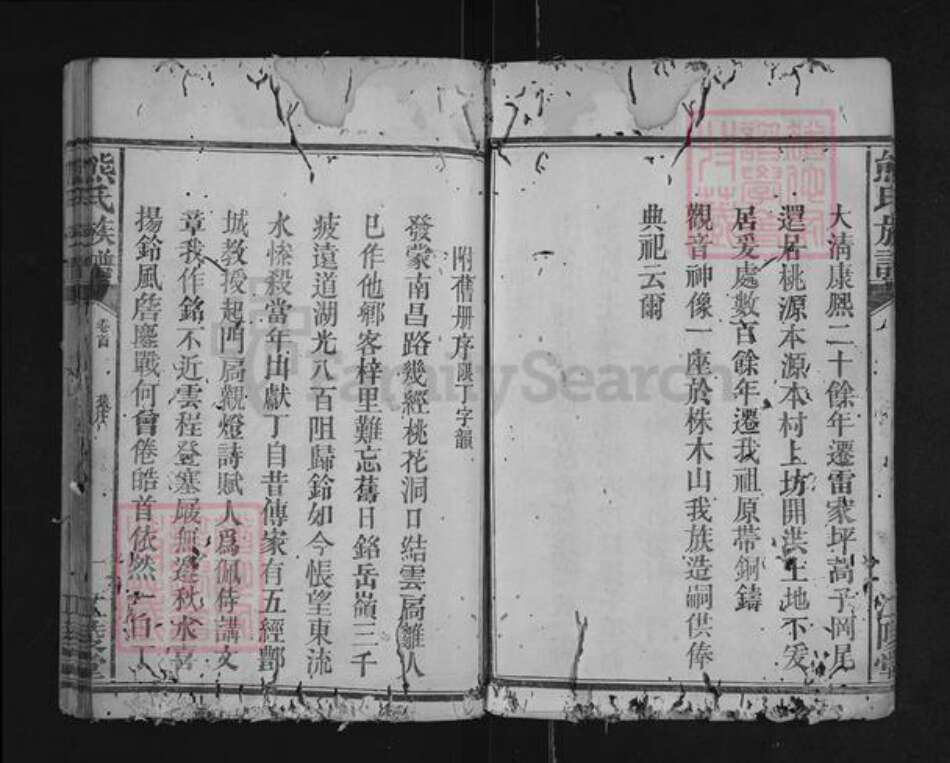 熊氏族譜
大淸康熙二十餘年遷雷家坪蒿子岡尾
還居桃源本源本村上坊開洪土地不爰
居爰處數百餘年遷我祖原帶銅鑄
觀音神像一座於株木山我族造嗣供俸
典祀云爾
附舊册序限丁字韻
發蒙南昌路幾經桃花洞口結雲扃離人
已作他鄉客梓里難忘舊日銘岳嶺三千
疲遠道湖光八百阻歸鈴如今悵望東流
水慘殺當年出獻丁自昔傳家有五經酆
城教授起門扃觀燈詩賦人爲佩侍講文
章我作銘不近雲程登塞扃無邊秋水喜
揚鈴風簷鏖戰何曾倦皓首依然一伯丁
熊氏族譜
卷首
FamilySearch